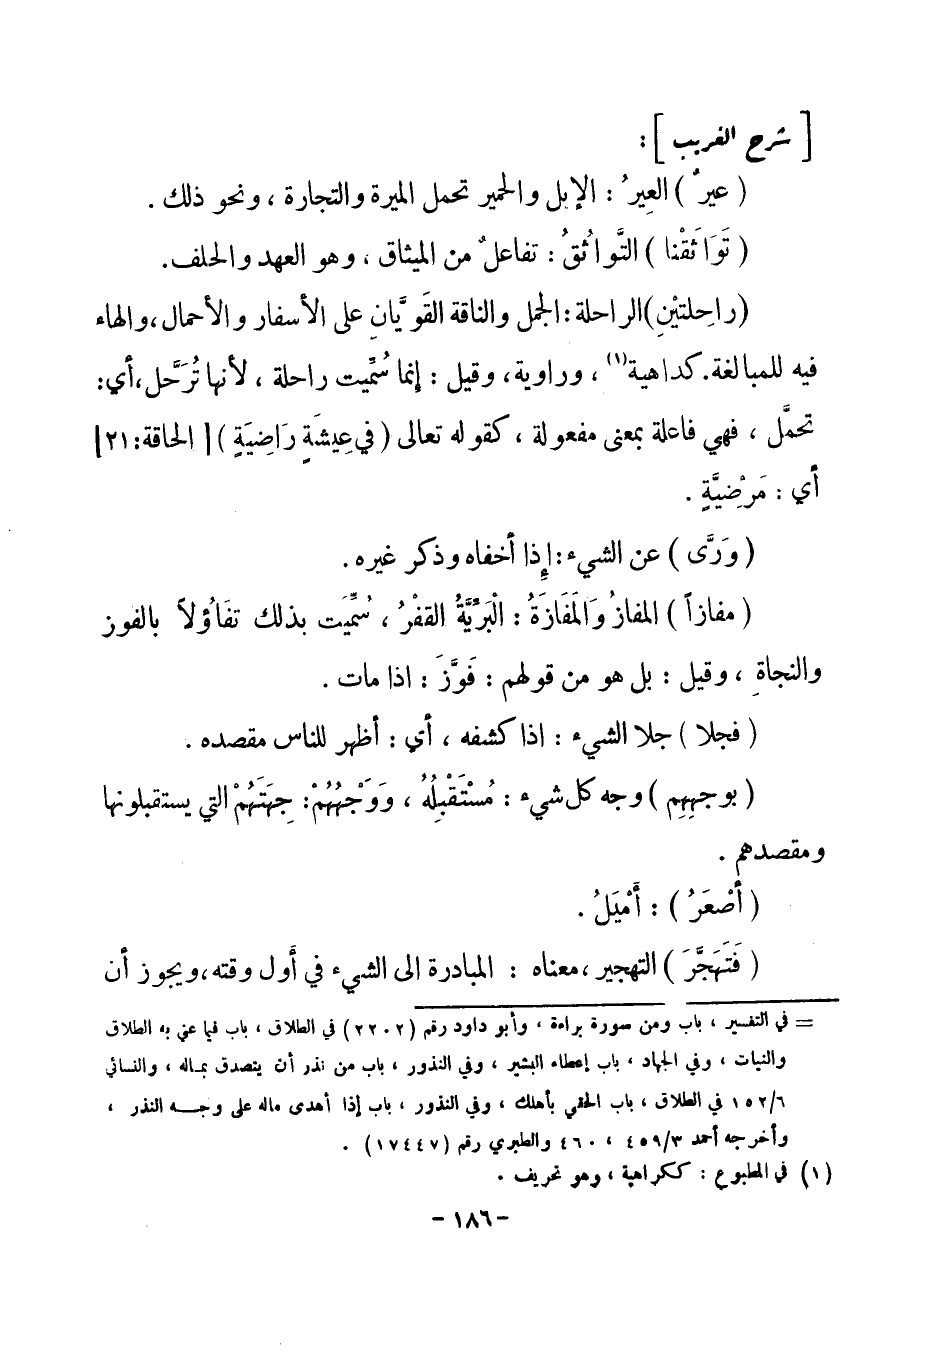 [ شرح الغريب ] :
( عيرٌ ) العِيرُ : الإبل والحمير تحمل الميرة والتجارة ، ونحو ذلك .
( تَوَاثَقْنا ) التَّواثُقُ : تفاعلٌ من الميثاق ، وهو العهد والحلف.
(راحِلتيْنِ)الراحلة : الجمل والناقة القَويَّانِ على الأسفار والأحمال،والهاء
فيه للمبالغة. كداهية(١) ، وراوية، وقيل : إنما سُمِّيت راحلة ، لأنها تُرَحَّل،أي:
تحمَّل ، فهي فاعلة بمعنى مفعولة ، كقوله تعالى ( في عِيشَةٍ رَاضِيَةٍ ) [ الحاقة:٢١]
أي : مَرْضِيَّةٍ .
( وَرَّى ) عن الشيء : إِذا أخفاه وذكر غيره .
( مفازاً ) المفازُ وَالمَفَازَةُ : الْبَرِّيَّةُ القفْرُ ، سُمِّيَت بذلك تَفَاؤلاً بالفوز
والنجاةِ ، وقيل : بل هو من قولهم : فَوَّزَ : اذا مات .
( فجلا ) جلا الشيء : اذا كشفه ، أي : أظهر للناس مقصده .
( بوجهِهِم ) وجه كل شيء : مُسْتَقْبِلُهُ ، وَوَجْهُهُمْ : جِهَتَهُمْ التي يستقبلونها
ومقصدهم .
( أَصْعَرُ ) : أَمْيَلُ .
( فَتَهَجَّرَ ) التهجير ،معناه : المبادرة الى الشيء في أول وقته،ويجوز أن
= في التفسير ، باب ومن سورة براءة ، وأبو داود رقم (٢٢٠٢) في الطلاق ، باب فيما عني به الطلاق
والنيات ، وفي الجهاد ، باب إعطاء البشير ، وفي النذور ، باب من نذر أن يتصدق بماله ، والنسائي
١٥٢/٦ في الطلاق ، باب الحقي بأهلك ، وفي النذور ، باب إذا أهدى ماله على وجه النذر ،
وأخرجه أحمد ٤٥٩/٣ ، ٤٦٠ والطبري رقم (١٧٤٤٧) .
(١) في المطبوع : ككراهية ، وهو تحريف .
- ١٨٦ -